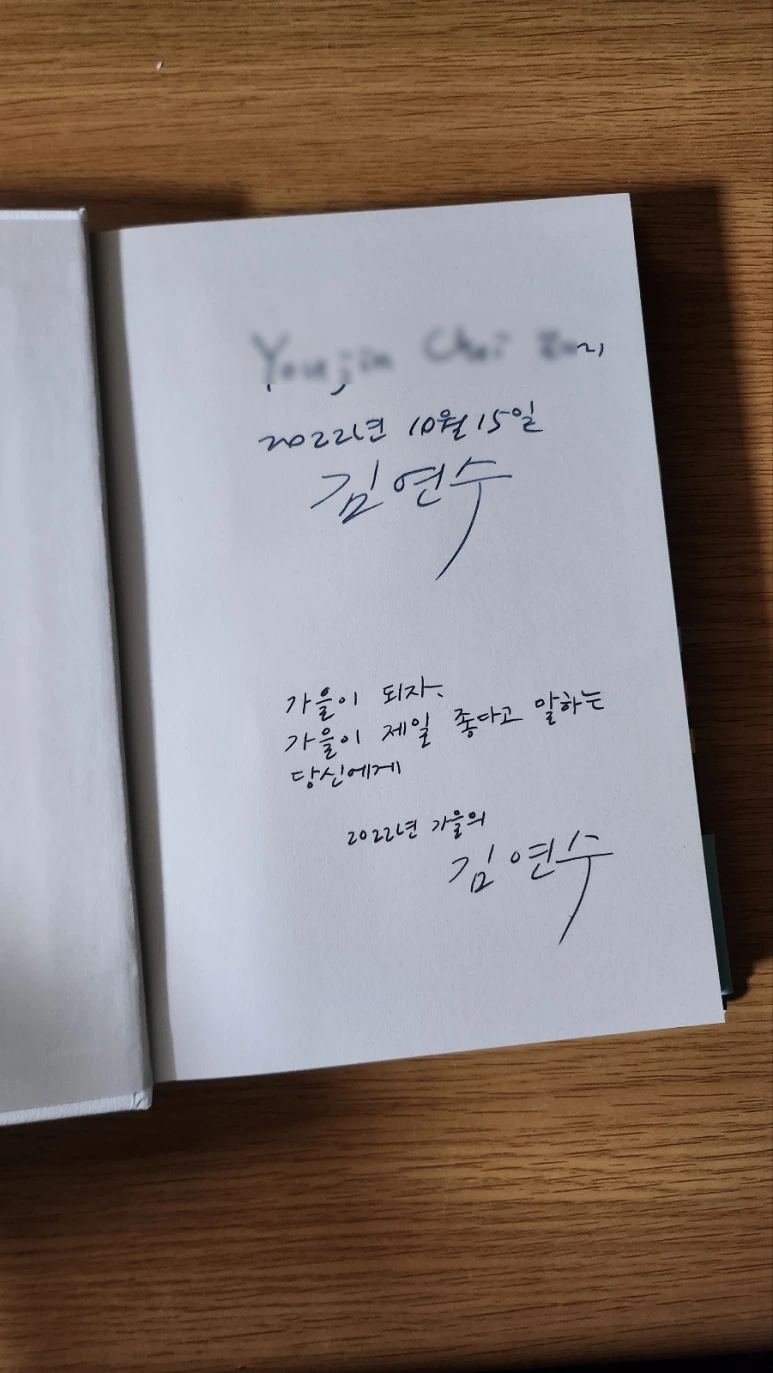 2022년 10월 15일
김연수
가을이 되자,
가을이 제일 좋다고 말하는
당신에게
2022년 가을의
김연수